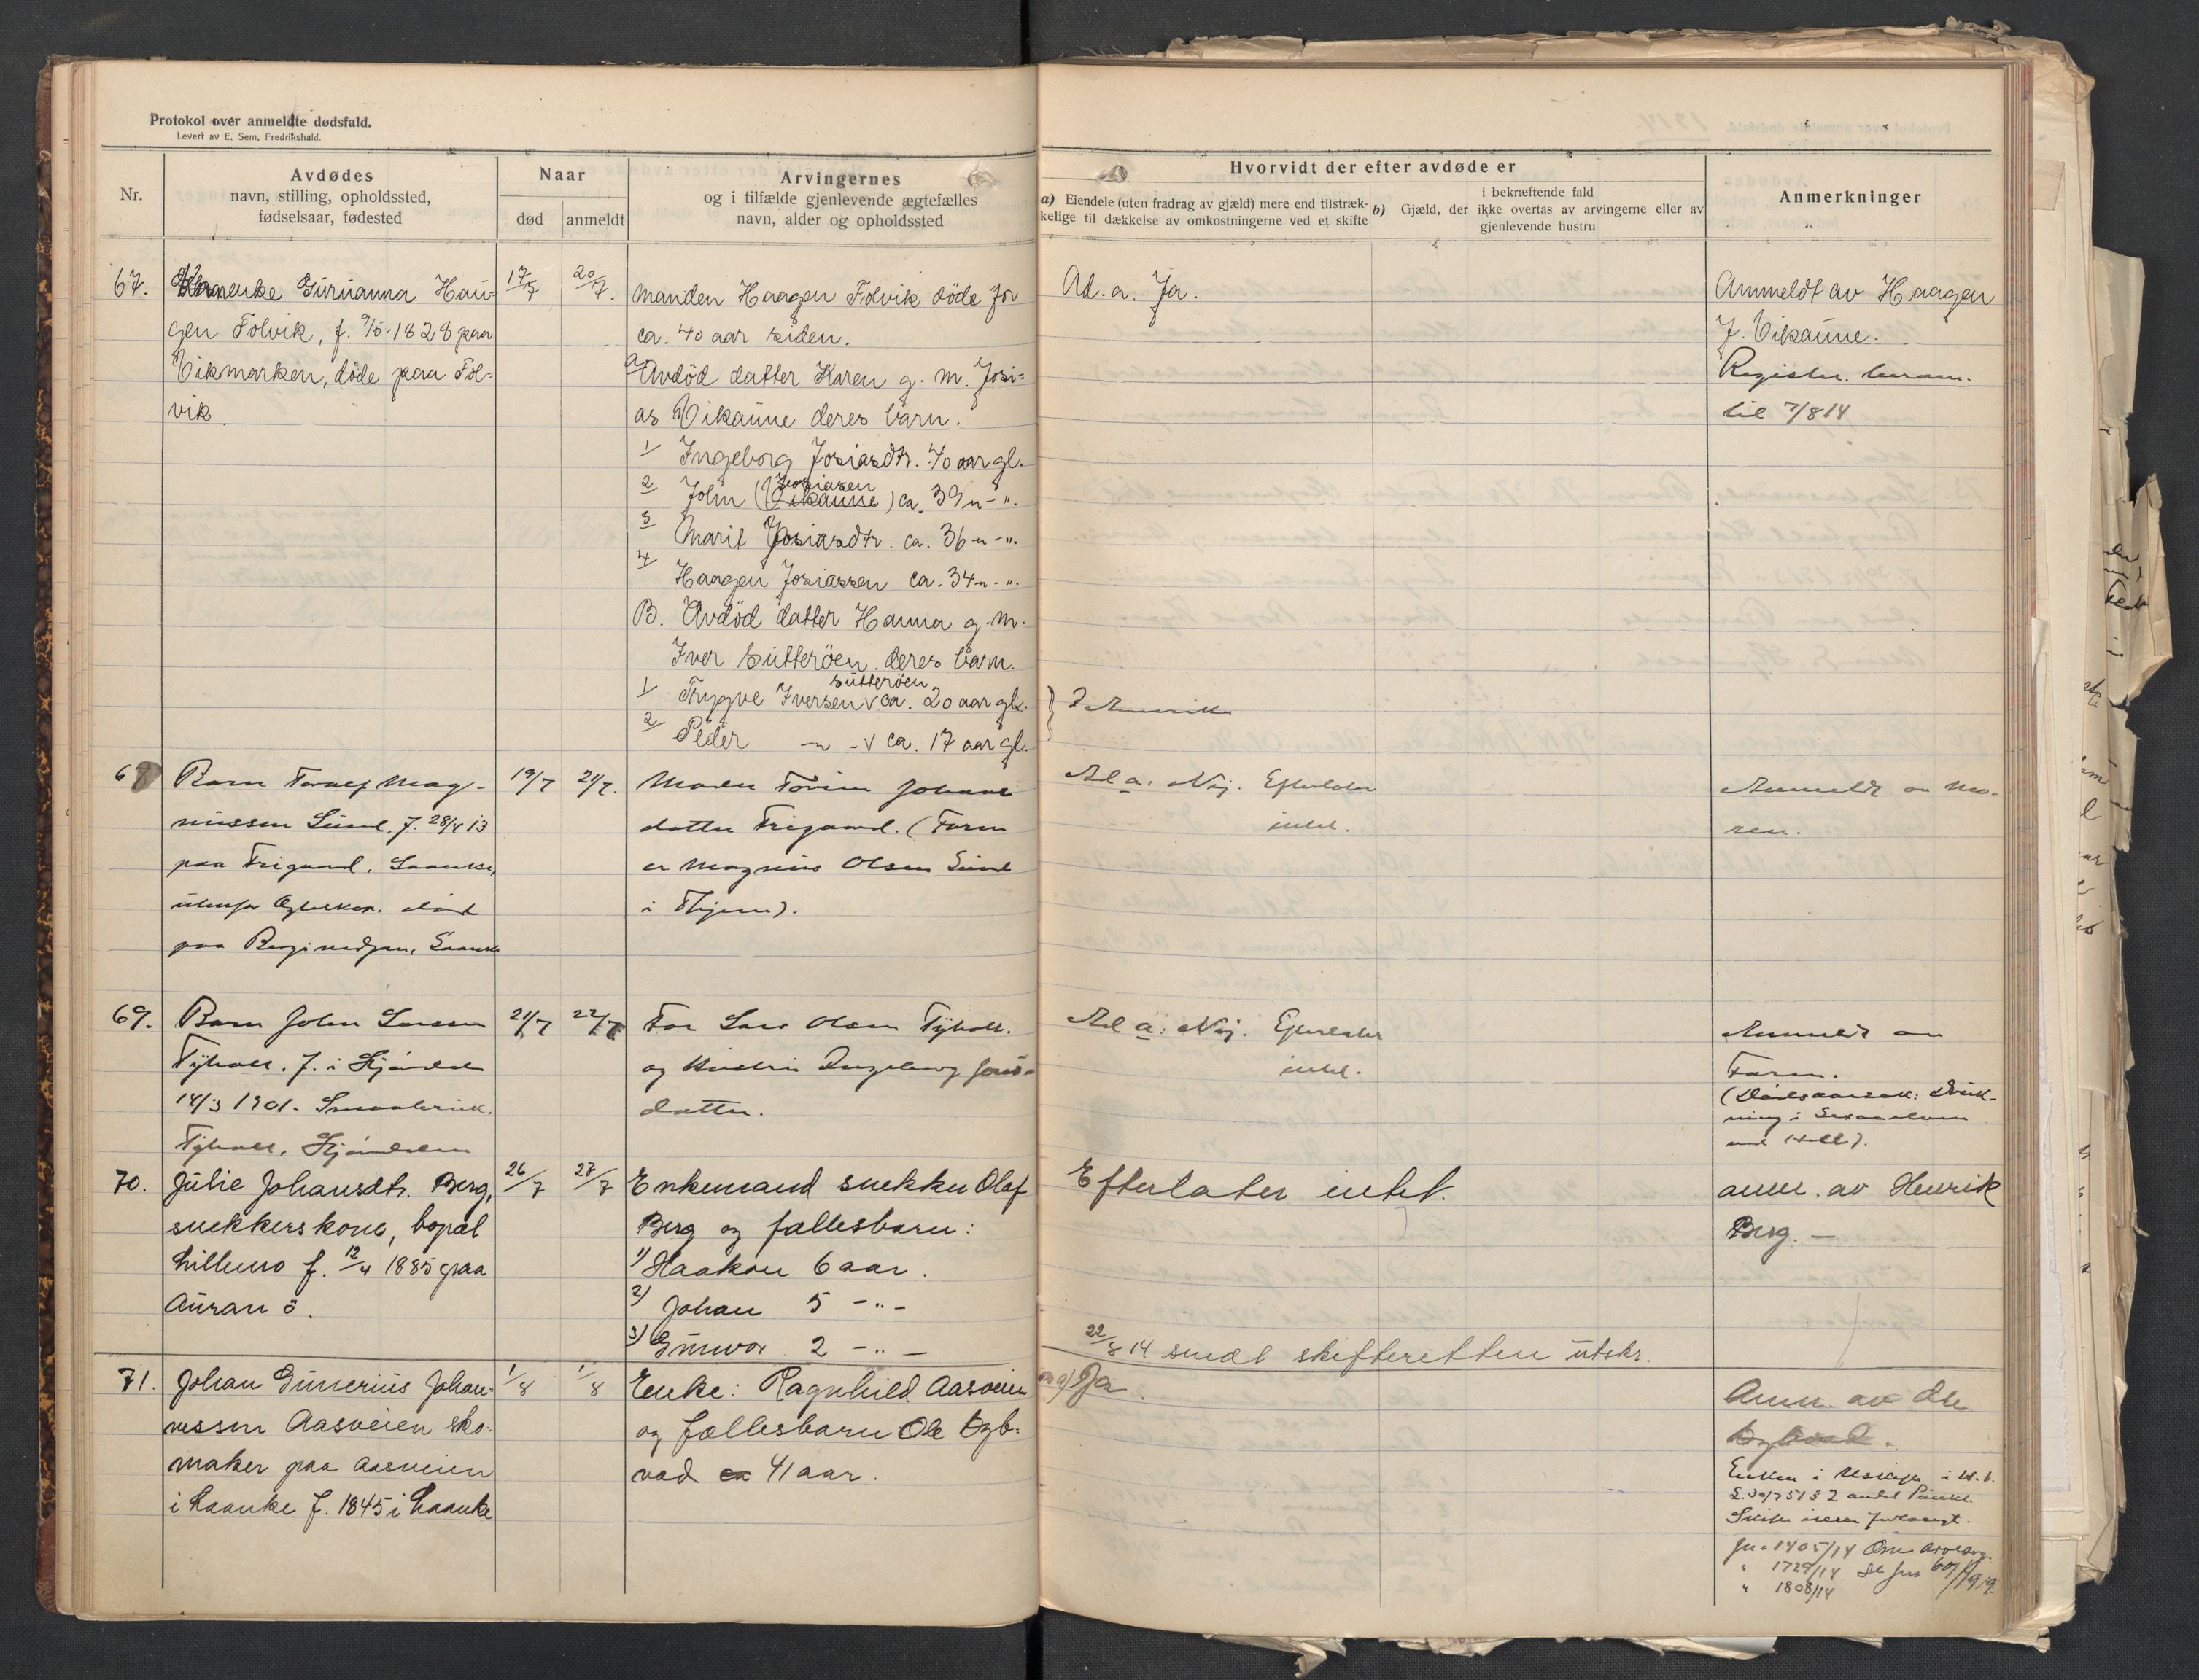 Protokol over anmeldte dødsfald.
Levert av E. Sem, Fredrikshald.
Nr.
Avdødes
navn, stilling, opholdssted,
fødselsaar, fødested
Naar
død
anmeldt
Arvingernes
og i tilfælde gjenlevende ægtefælles
navn, alder og opholdssted
Hvorvidt der efter avdøde er
a) Eiendele (uten fradrag av gjæld) mere end tilstræk-
kelige til dækkelse av omkostningerne ved et skifte
i bekræftende fald
b) Gjæld, der ikke overtas av arvingerne eller av
gjenlevende hustru
Anmerkninger
67.
enke Gurianna Hau-
gen Folvik, f. 9/5-1828 paa
Vikmarken, döde paa Fol-
vik.
17/7
20/7.
Manden Haagen Folvik döde for
ca. 40 aar siden.
a Avdöd datter Karen g. m. Josi-
as Vikaune deres barn.
1 Ingeborg Josiasdtr. 40 aar gl.
2 John (Vikaune) Josiasen ca. 39 " - ".
3 Marit Josiasdtr. ca. 36 " - ".
4 Haagen Josiassen ca. 34 " - ".
B. Avdöd datter Hanna g. m.
Iver Sutteröen. deres barn.
1 Trygve Iversen Sutteröen ca. 20 aar gl.
2 Peder " - ca. 17 aar gl.
Ad. a. Ja.
Anmeldt av Haagen
J. Vikaune.
Register.
til 7/8 14
68
Barn Toralf Mag-
nussen Sund. f. 28/4 13
paa Trigaard, Laanke,
utenfor Egteskap. död
paa
19/7
21/7.
Moder Johans-
datter Trigaard. (Faren
er Magnus Olsen Sund
i
Ad a: Nej. Efterlater
intet.
Anmeldt av Mo-
ren.
69.
Barn John Larsen
Tyholt. f. i Stjördalen
14/3 1901.
Tyholt, Stjördalen
21/7
22/7
Far Lars Olsen Tyholt.
og Hustru Ingeborg
datter.
Ad a: Nej. Efterlater
intet.
Anmeldt av
Faren.
(Dödsaarsak: Druk-
ning i
ved Hell).
70.
Julie Johansdtr. Berg,
snekkerskone, bopæl
Lillemo f. 12/4 1885 paa
Auran ö.
26/7
27/7
Enkemand snekker Olaf
Berg og fællesbarn:
1) Haakon 6 aar.
2) Johan 5 - " -
3) Gunvor 2 - " -
Efterlater intet.
anm. av Henrik
Berg. -
22/8 14 sendt skifteretten utskr.
71.
Johan Gunerius Johan-
nessen Aasveien sko-
maker paa Aasveien
i Laanke f. 1845 i Laanke
1/8
1/8
Enke: Ragnhild Aasveien
og fællesbarn Ole Bgb-
vad ca 41 aar.
a) Ja.
Anm. av
Enken i Uskiftet i
andet Punkt.
Skifte forlangt.
Jn. 1405/14
" 1729/14
" 1808/14